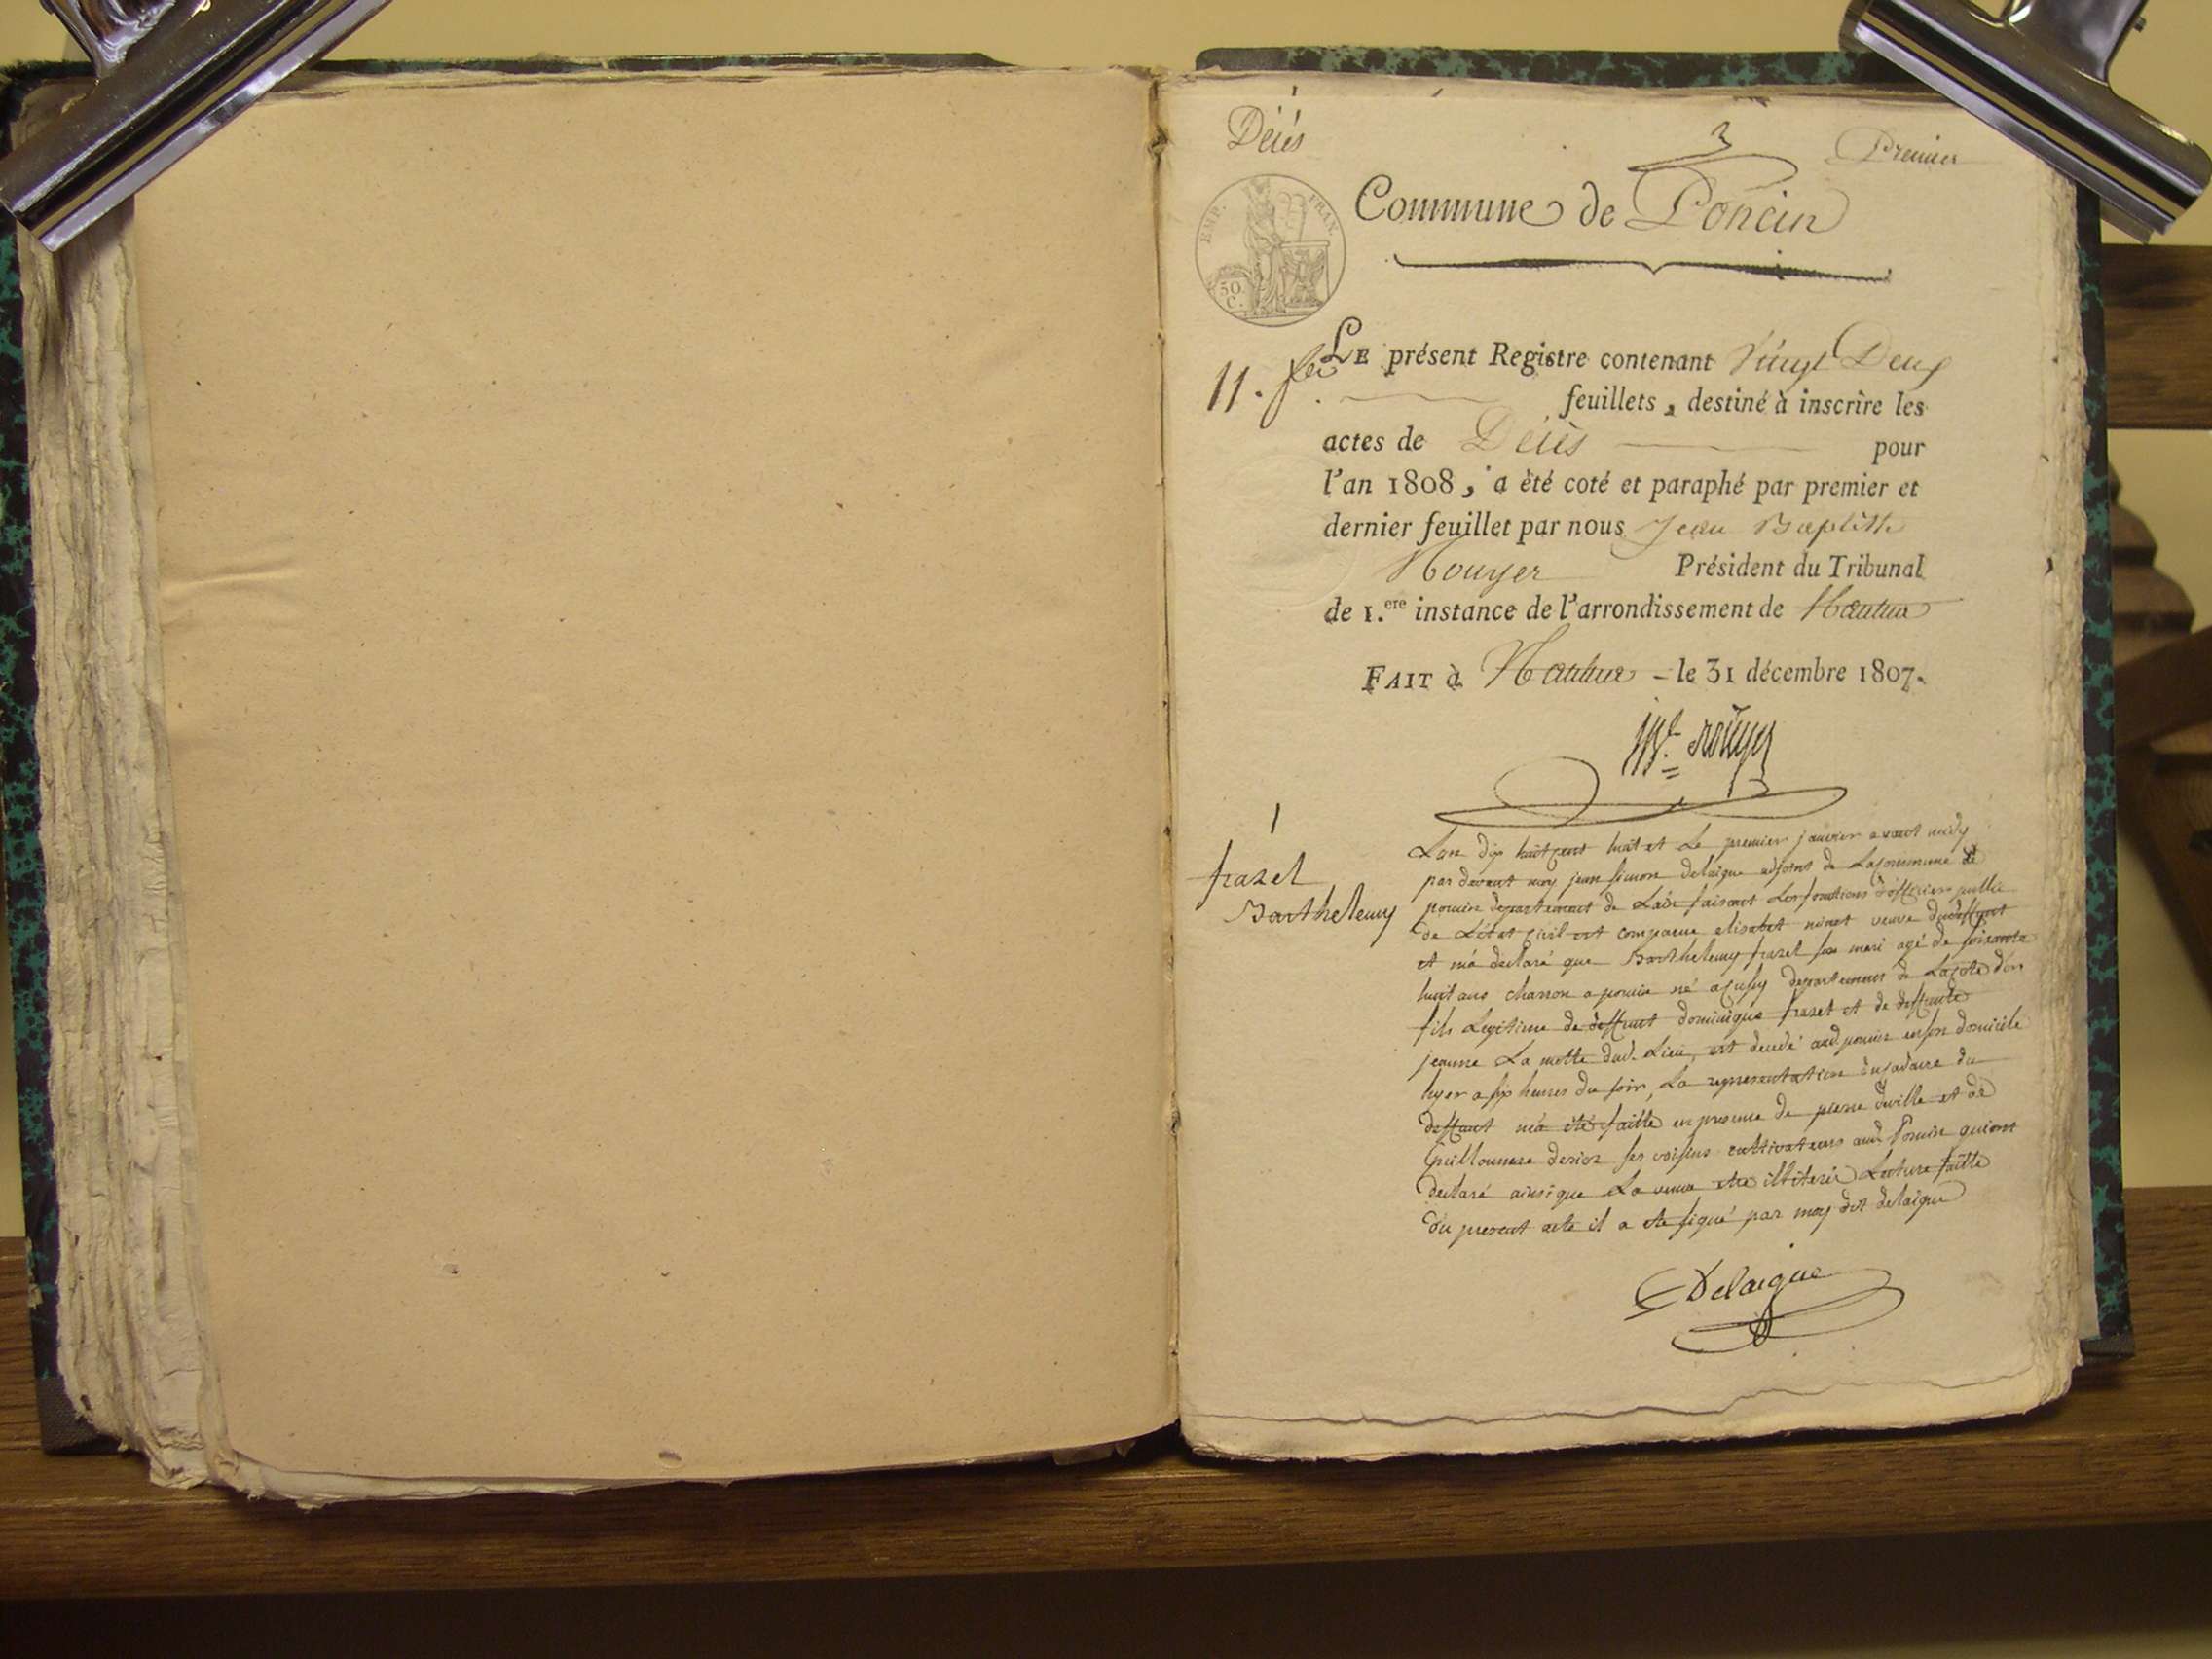 Décès
Premier
Commune de Poncin
EMP. FRAN.
50. C.
11. fer
LE présent Registre contenant Vingt Deux
feuillets, destiné à inscrire les
actes de Décès pour
l'an 1808, a été coté et paraphé par premier et
dernier feuillet par nous Jean Baptiste
Rouyer Président du Tribunal
de 1.ere instance de l'arrondissement de Nantua
FAIT à Nantua le 31 décembre 1807.
Rouyer
1
frazet
Barthelemy
Lan dix huit cent huit et Le premier janvier avant midy
par devant moy jean simon delaigue adjoint de La commune de
poncin departement de Lain faisant Les fonctions d'officier public
de L'état civil est comparue elisabet venve dudeffunt
et m'a declaré que Barthelemy frazet son mari agé de soixante
huit ans charron a poncin né a departement de La cote d'or
fils Legitime de deffunt dominique frazet et de deffunte
jeanne La motte dud. Lieu, est decedé aud. poncin en son domicile
hyer a six heures du soir, La representation du cadavre du
deffunt m'a été faitte en presence de pierre et de
Guillaume ses voisins cultivateurs aud. Poncin qui ont
declaré ainsi que La veuve etre illiterés Lecture faitte
du present acte il a ete signé par moy dit delaigue
Delaigue